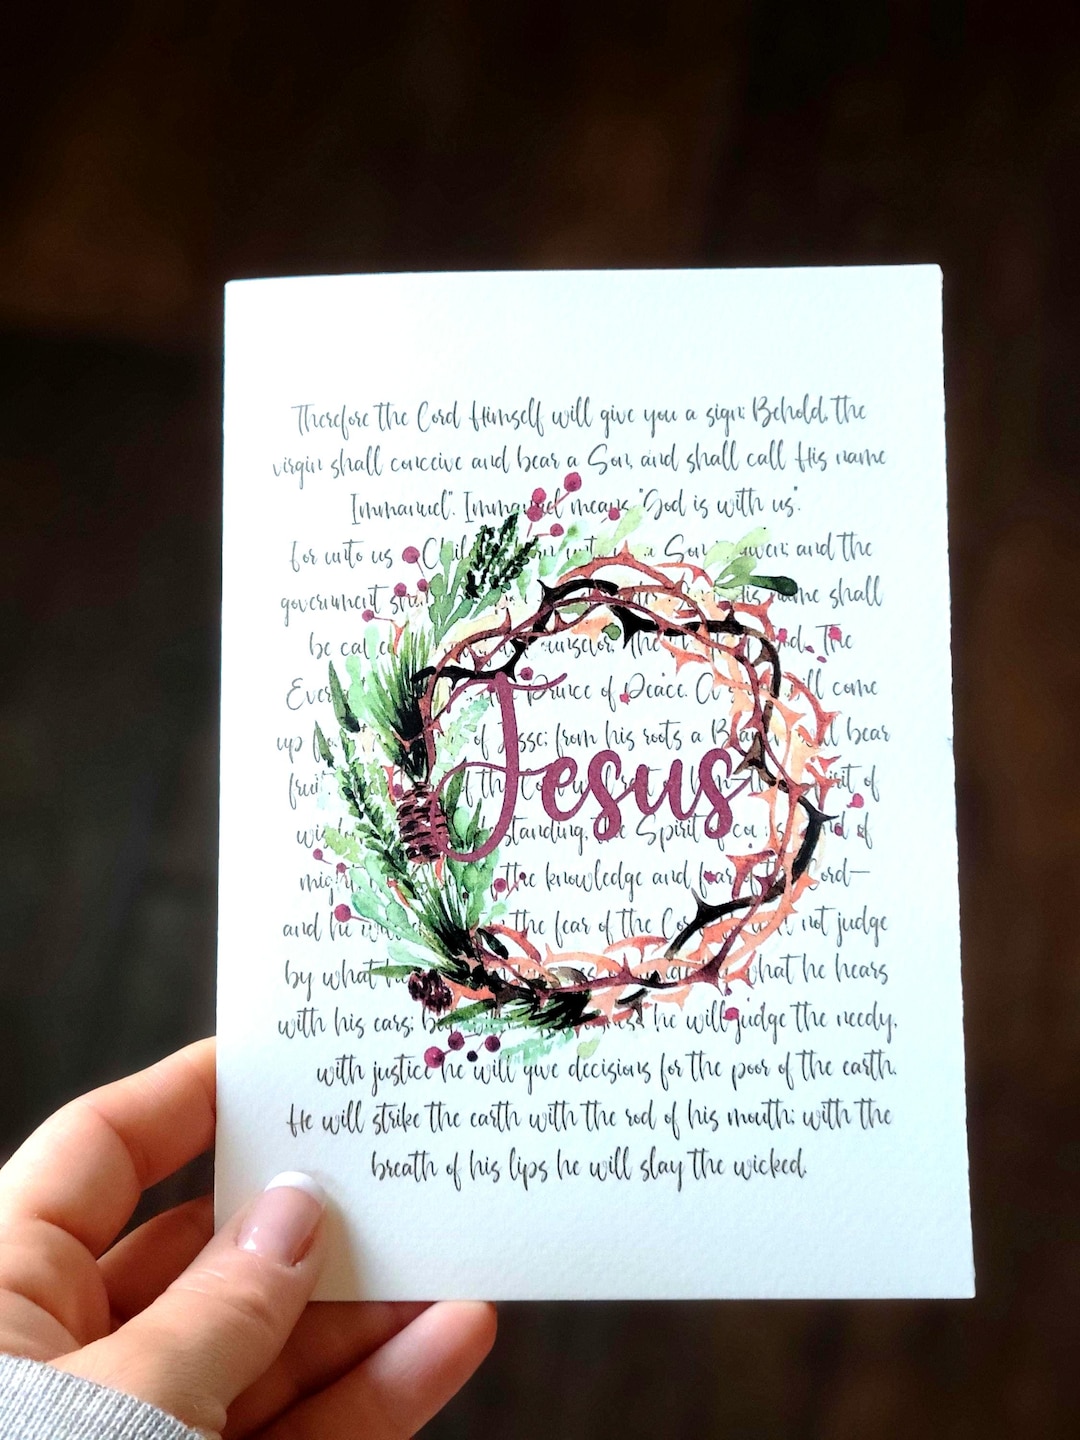 Therefore the Lord Himself will give you a sign: Behold, the
virgin shall conceive and bear a Son, and shall call His name
Immanuel". Immanuel means "God is with us".
For unto us Child unto a Son and the
government His name shall
be called Counselor, The The
Prince of Peace. A will come
up of Jesse; from his roots a bear
fruit. of the of
Jesus
the Spirit of and of
might, the knowledge and fear of the Lord—
and he will the fear of the not judge
by what he what he hears
with his ears; he will judge the needy,
with justice he will give decisions for the poor of the earth.
He will strike the earth with the rod of his mouth; with the
breath of his lips he will slay the wicked.